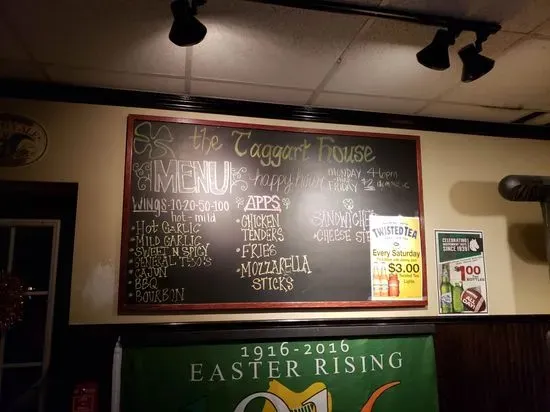 the Taggart House
MENU
happy hour
MONDAY 4-6pm
FRIDAY $2
WINGS-10-20-50-100
hot-mild
• HOT GARLIC
• MILD GARLIC
• SWEET N SPICY
• BBQ
• BOURBIN
• CAJUN
APPS
• CHICKEN
TENDERS
• FRIES
• MOZZARELLA
STICKS
SANDWICHES
• CHEESE
TWISTED TEA
Every Saturday
$3.00
Twisted Tea
Lights
CELEBRATING
SINCE 1939
$1.00
ALL DAY!
1916-2016
EASTER RISING